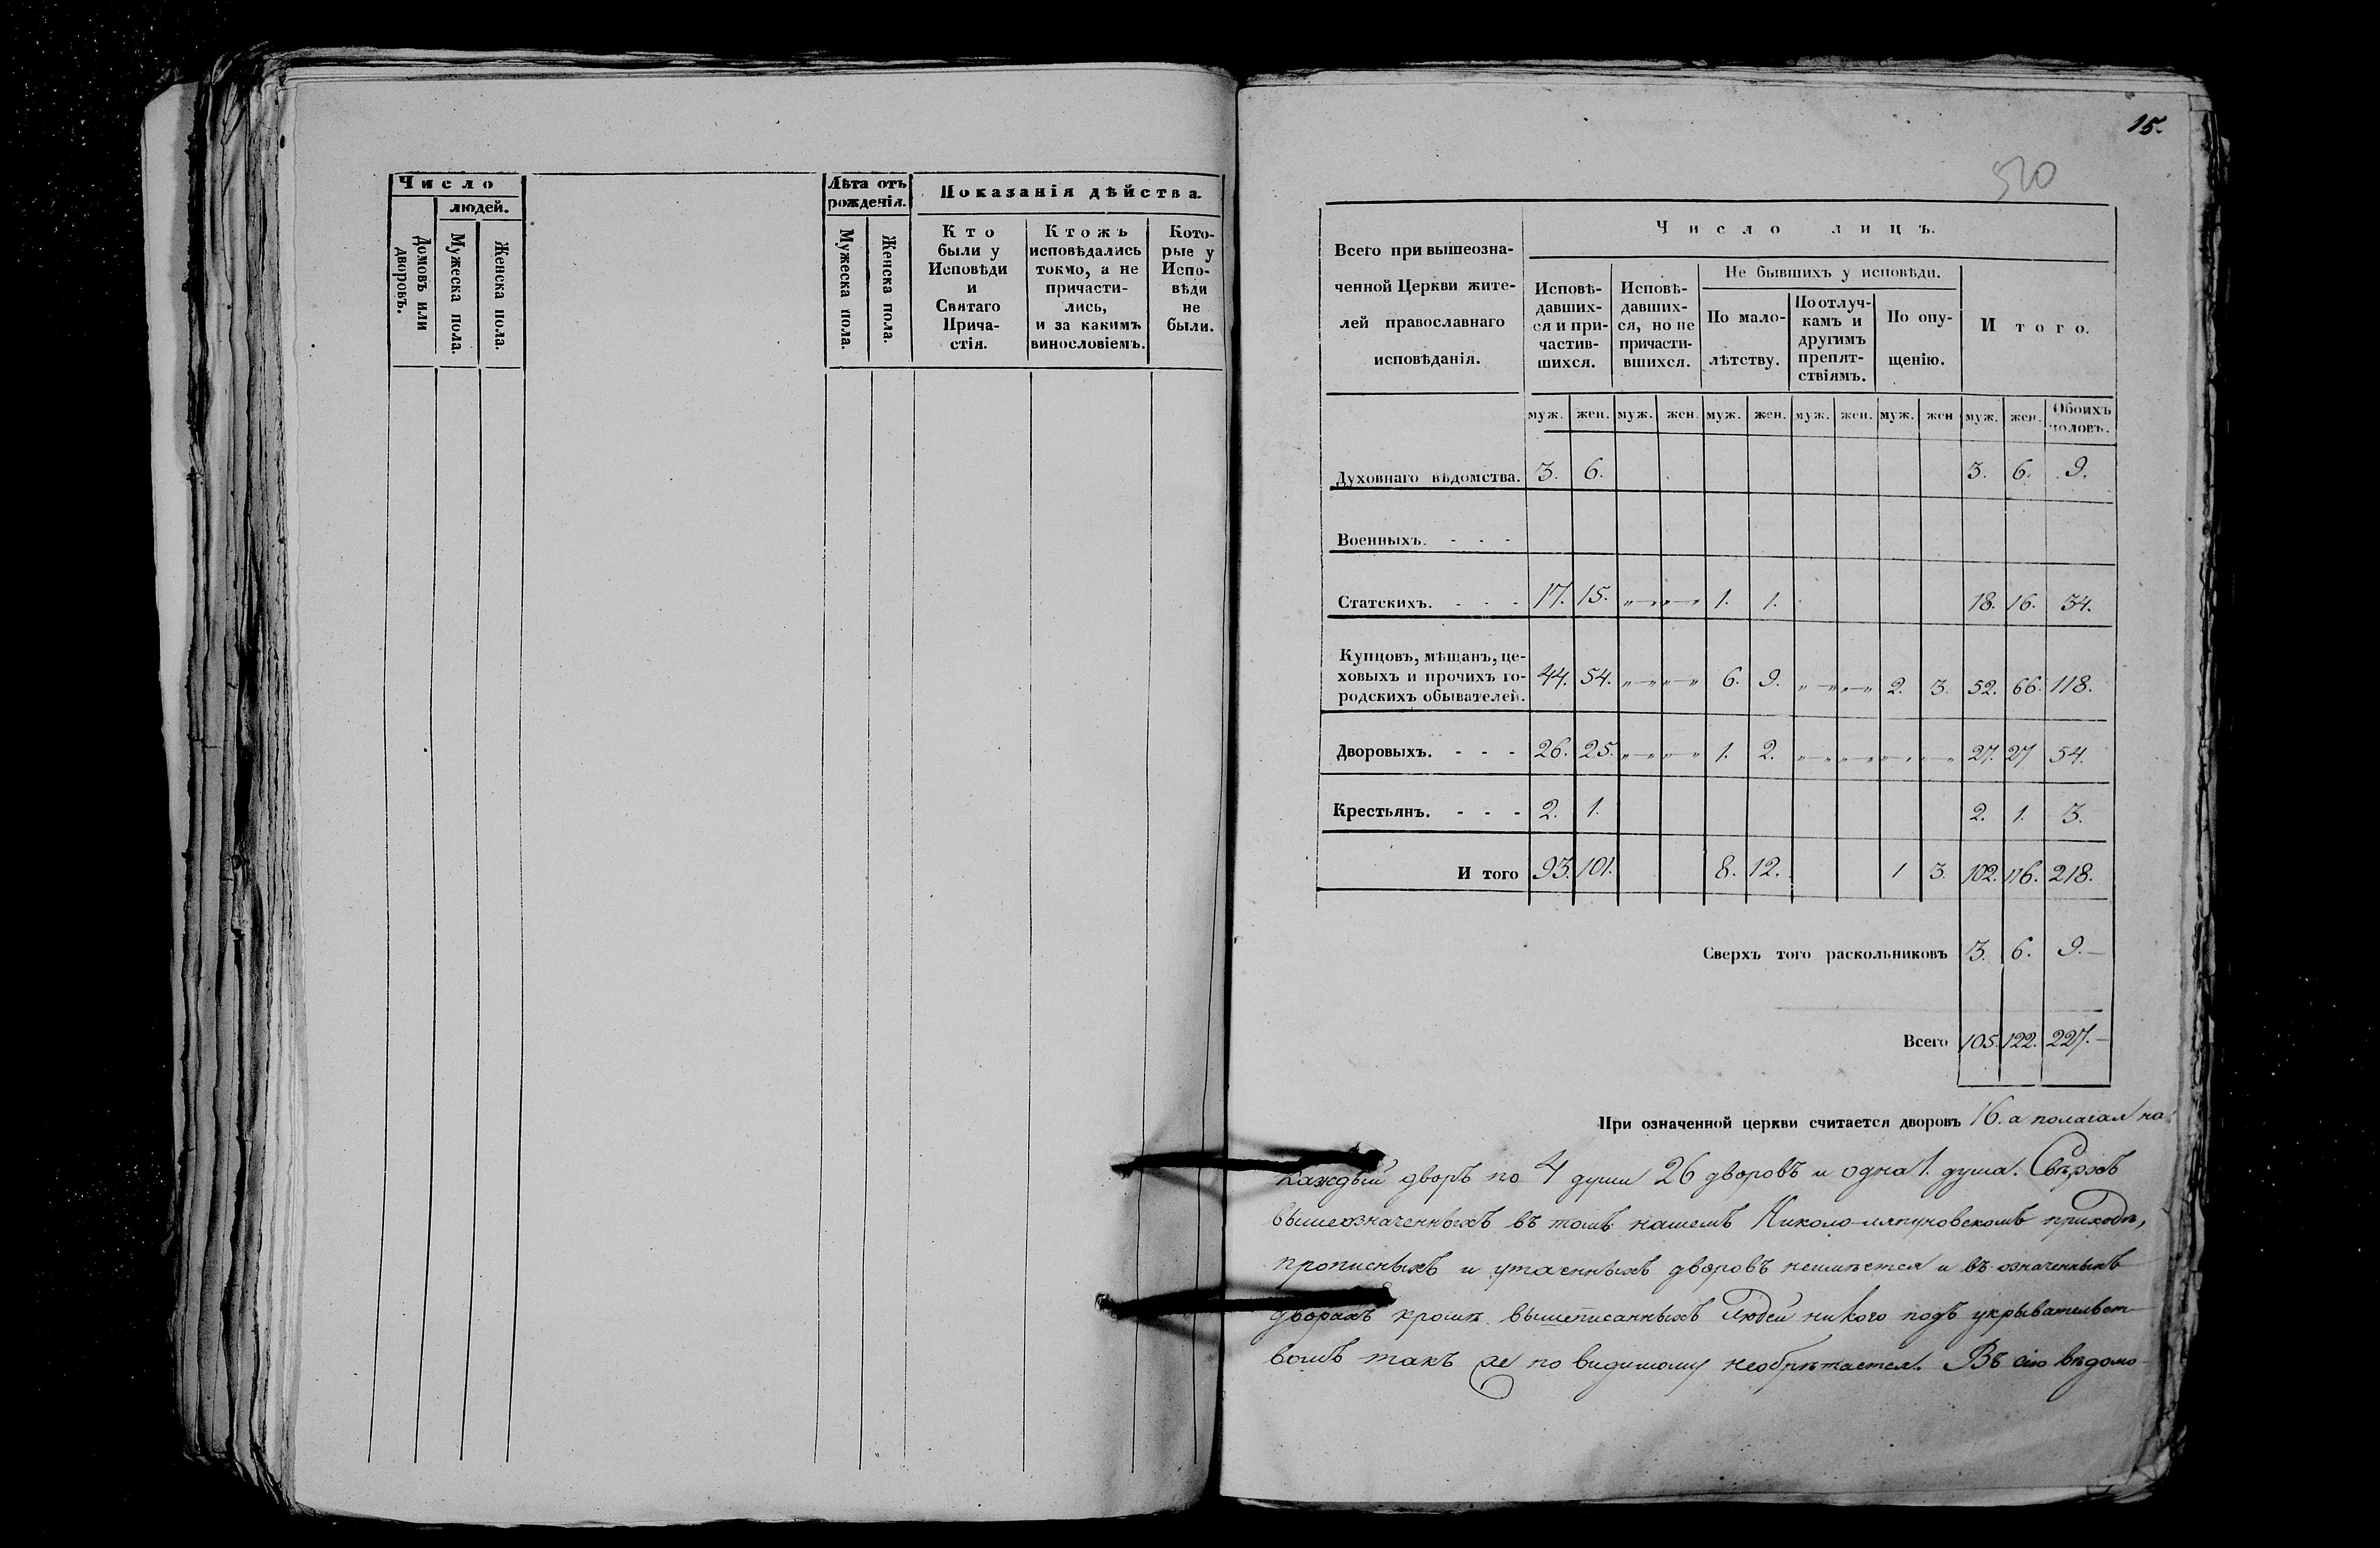 Число
людей.
Домовъ или дворовъ.
Мужеска пола.
Женска пола.
Лѣта отъ рожденія.
Мужеска пола.
Женска пола.
Показанія дѣйства.
Кто
были у
Исповѣди
и
Святаго
Прича-
стія.
Ктожъ
исповѣдались
токмо, а не
причасти-
лись,
и за какимъ
винословіемъ.
Кото-
рые у
Испо-
вѣди
не
были.
15.
520
Всего при вышеозна-
ченной Церкви жите-
лей православнаго
исповѣданія.
Число лицъ.
Исповѣ-
давших-
ся и при-
частив-
шихся.
Исповѣ-
давших-
ся, но не
причасти-
вшихся.
Не бывшихъ у исповѣди.
По мало-
лѣтству.
По отлуч-
камъ и
другимъ
препят-
ствіямъ.
По опу-
щенію.
Итого.
муж. жен. муж. жен. муж. жен. муж. жен. муж. жен муж. жен. Обоихъ половъ.
Духовнаго вѣдомства. 3. 6. 3. 6. 9.
Военныхъ. - - -
Статскихъ. - - - 17. 15. „ „ 1. 1. 18. 16. 34.
Купцовъ, мѣщанъ, це-
ховыхъ и прочихъ го-
родскихъ обывателей. 44. 54. „ „ 6. 9. „ „ 2. 3. 52. 66. 118.
Дворовыхъ. - - - 26. 25. „ „ 1. 2. „ „ „ „ 27. 27 54.
Крестьянъ. - - - 2. 1. 2. 1. 3.
И того 93. 101. 8. 12. 1 3. 102. 116. 218.
Сверхъ того раскольниковъ 3. 6. 9.—
Всего 105. 122. 227.—
При означенной церкви считается дворовъ 16. а полагая на
каждый дворъ по 4 души 26 дворовъ и одна 1. душа. Свѣрхъ
вышеозначенныхъ въ томъ нашемъ Николо-ляпуновскомъ приходѣ,
прописныхъ и утаенныхъ дворовъ неимѣется и въ означенныхъ
дворахъ кромѣ вышеписанныхъ Людей никого подъ укрывательст-
вомъ такъ же по видимому необрѣтается. Въ сію вѣдомо-